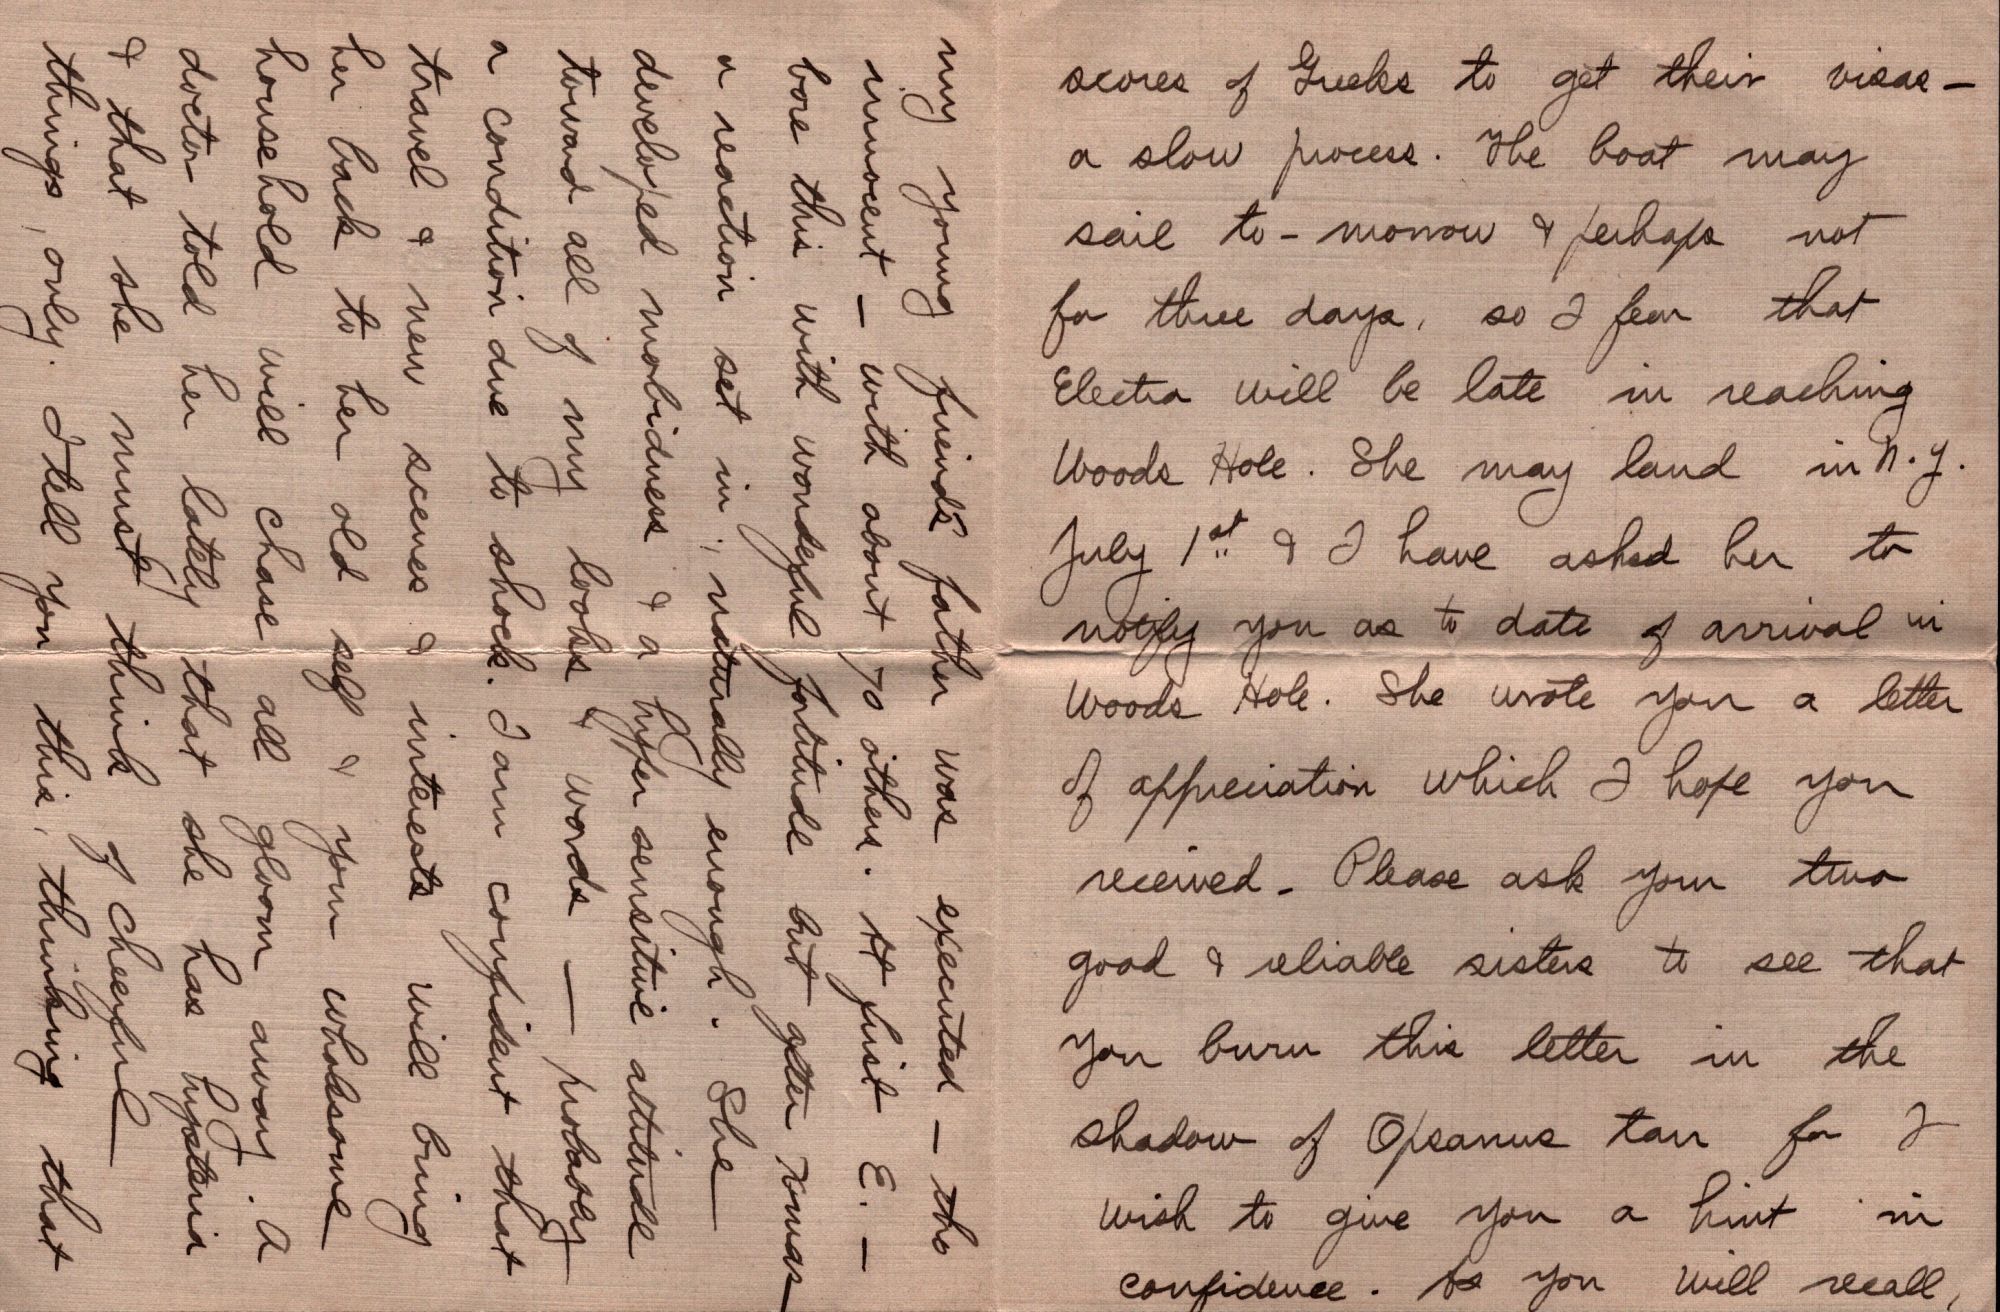 scores of Greeks to get their visas –
a slow process. The boat may
sail to-morrow & perhaps not
for three days, so I fear that
Electra will be late in reaching
Woods Hole. She may land in N.Y.
July 1st & I have asked her to
notify you as to date of arrival in
Woods Hole. She wrote you a letter
of appreciation which I hope you
received – Please ask your two
good & reliable sisters to see that
you burn this letter in the
shadow of Opsanus tau for I
wish to give you a hint in
confidence. As you will recall,
my young friend's father was executed – tho
innocent – with about 70 others. At first E. –
bore this with wonderful fortitude but after Xmas
a reaction set in, naturally enough. She
developed morbidness & a hyper sensitive attitude
toward all of my looks & words – probably
a condition due to shock. I am confident that
travel & new scenes & interests will bring
her back to her old self & your wholesome
household will chase all gloom away. A
doctor told her lately that she has hysteria
& that she must think of cheerful
things, only. I tell you this, thinking that